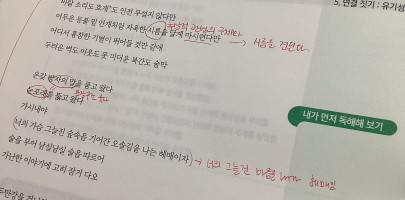 5. 연결 짓기 : 유기성
바람 소리도 호개도 인전 무섭지 않다만
어두운 등불 밑 안개처럼 자욱한 시름을 달게 마시련다만
시름을 견딘다
어디서 흉참한 기별이 뛰어들 것만 같애
두터운 벽도 이웃도 못 미더운 북간도 술막
온갖 방자의 말을 품고 왔다
눈포래를 뚫고 왔다
내가 먼저 독해해 보기
가시내야
너의 가슴 그늘진 숲속을 기어간 오솔길을 나는 헤매이자
너의 그늘진
술을 부어 남실남실 술을 따르어
가난한 이야기에 고히 잠거 다오
두만강을